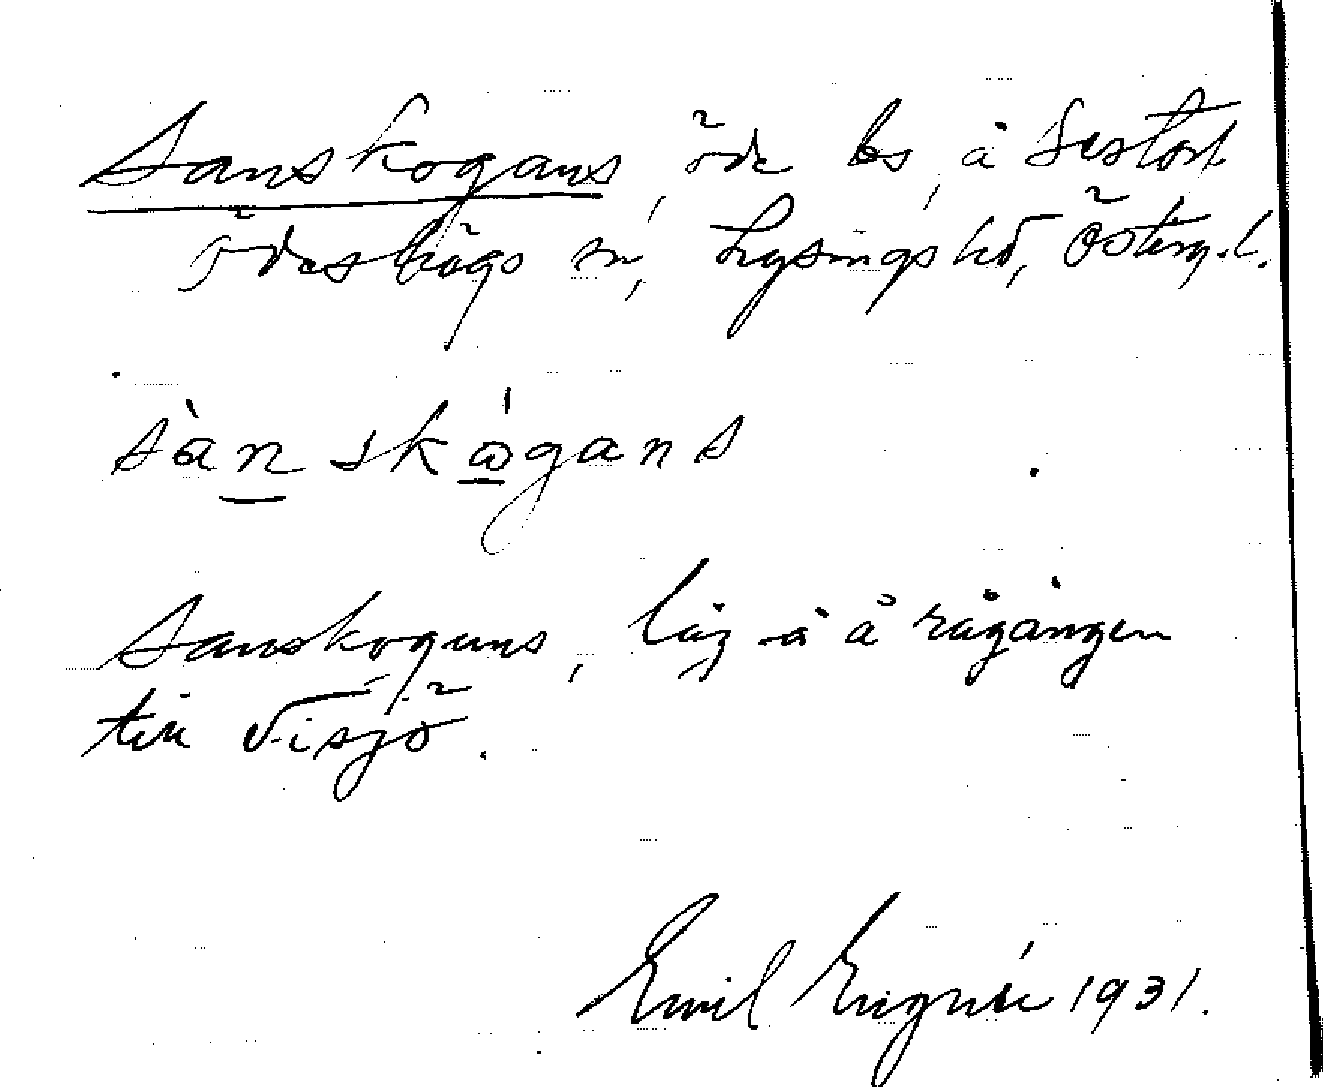 Sanskogans, öde bs, å Sestorp
Ödeshögs sn, Lysings hd, Österg. l.
sàn skógans
Sanskogens, låg å å rågången
till Visjö.
Emil Engnér 1931.